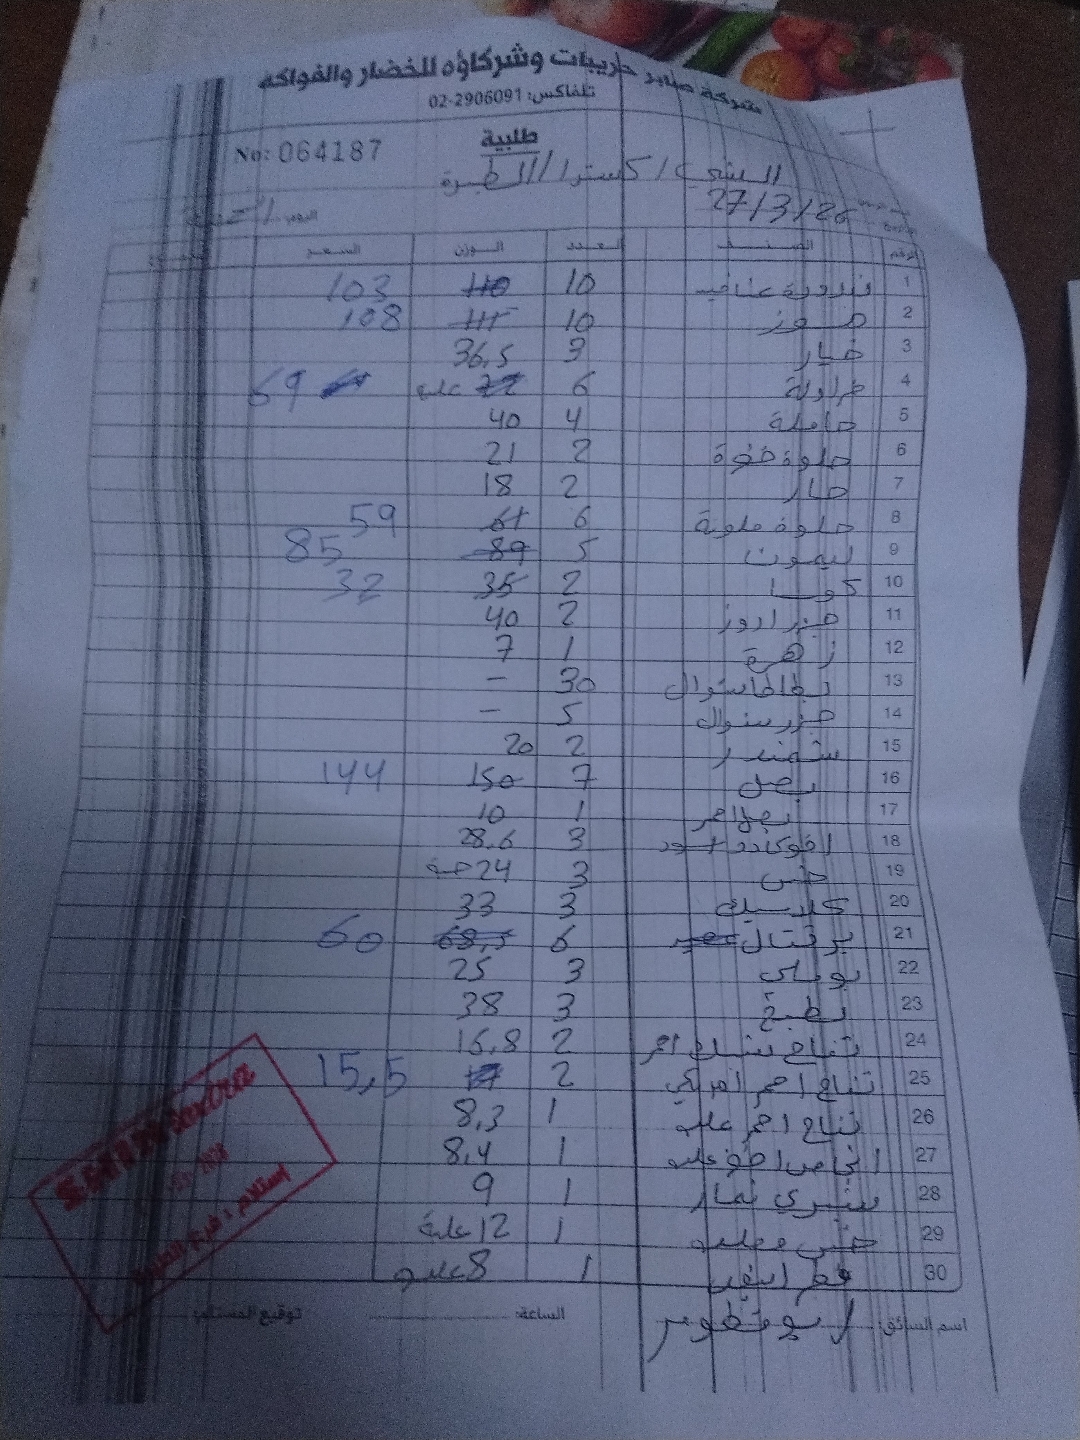 شركة صابر حريبات وشركاؤه للخضار والفواكه
تلفاكس: 02-2906091
طلبية
No: 064187
الشني / اكسترا / الطيرة
27/3/26
اليوم: الجمعة
الرقم الصنف العدد الوزن السعر
1 بندورة عناقيد 10 110 103
2 موز 10 111 108
3 خيار 3 36,5
4 فراولة 6 72 علبة 69
5 حاملة 4 40
6 حلوة خضرة 2 21
7 حار 2 18
8 حلوة ملونة 6 61 59
9 ليمون 5 89 85
10 كوسا 2 35 32
11 جزر اروز 2 40
12 زهرة 1 7
13 بطاطا شوال 30 -
14 جزر شوال 5 -
15 شمندر 2 20
16 بصل 7 150 144
17 بصل احمر 1 10
18 افوكادو اسود 3 28,6
19 خس 3 24 حبة
20 كلاسيك 3 33
21 برتقال عصير 6 68,5 60
22 بوملي 3 25
23 بطيخ 3 38
24 تفاح سكري احمر 2 16,8
25 تفاح احمر امريكي 2 17 15,5
26 تفاح احمر علب 1 8,3
27 اجاص اخضر علب 1 8,4
28 شيري نمار 1 9
29 خس معلب 1 12 علبة
30 فطر ابيض 1 8 علبة
اسم السائق: ابو تطوير الساعة: توقيع المستلم: